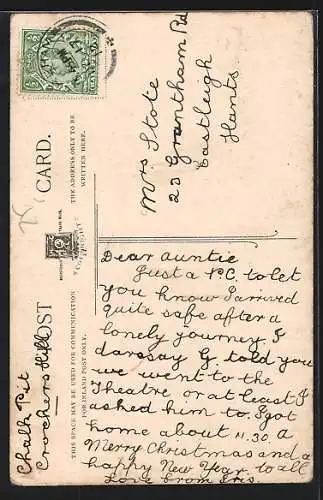 POST CARD.
THIS SPACE MAY BE USED FOR COMMUNICATION
FOR INLAND POST ONLY.
THE ADDRESS ONLY TO BE
WRITTEN HERE.
Mrs Stote
23 Grantham Rd
Eastleigh
Hants
Chalk Pit
Crockers Hill
Dear Auntie
Just a P.C. to let
you know I arrived
quite safe after a
lonely journey. I
daresay G. told you
we went to the
Theatre or at least I
asked him to. I got
home about 11.30. A
Merry Christmas and a
happy New Year to all
Love from Iris.